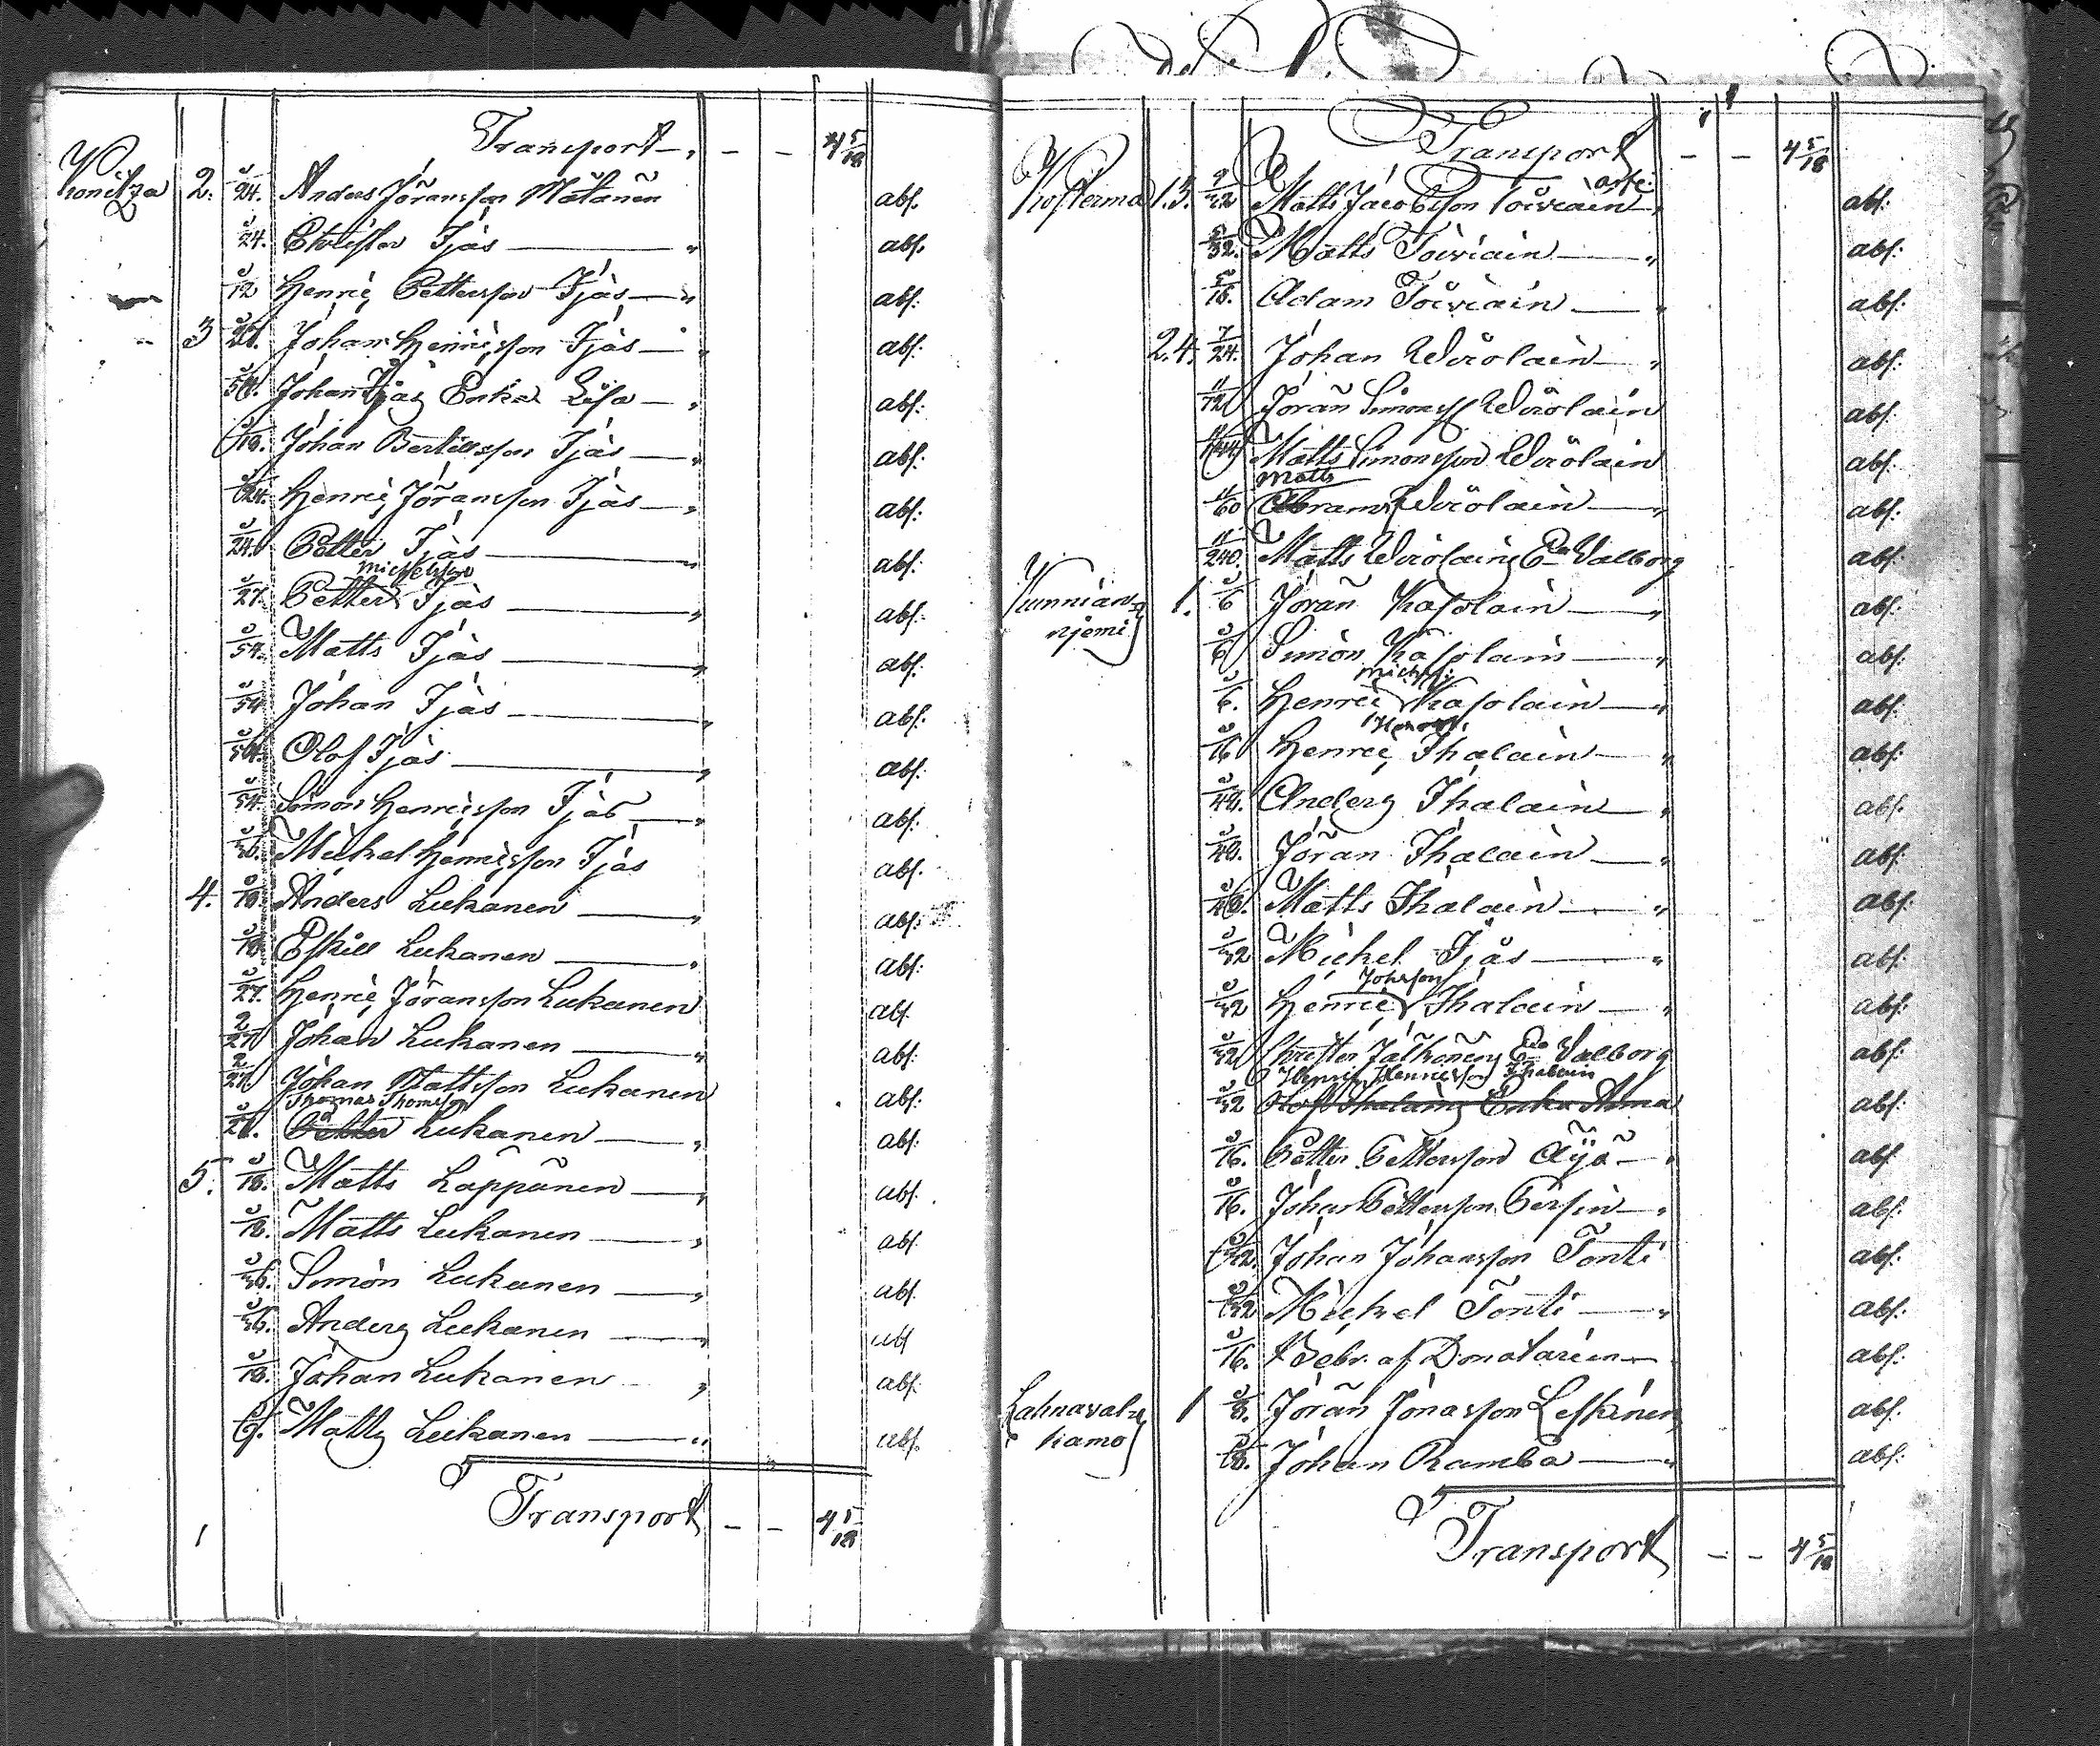 Transport - - 4 5/18
Kronitza 2. 1/24. Anders Jöransson Mätänen abs.
1/24. Christer Ijäs abs.
1/12 Henric Pettersson Ijäs abs.
3 Johan Henricsson Ijäs abs.
1/54. Johan Ijäs Enka Lisa abs:
1/18. Johan Bertillsson Ijäs abs:
1/24. Henric Jöransson Ijäs abs:
1/24. Petter Ijäs abs:
Michelsson
1/27. Petter Ijäs abs:
1/54. Matts Ijäs abs.
1/54 Johan Ijäs abs:
1/54. Olof Ijäs abs:
1/54. Simon Henricsson Ijäs abs:
1/36. Michel Henricsson Ijäs abs.
4. 1/18. Anders Lukanen abs:
1/18 Eskill Lukanen abs:
1/27. Henric Jöransson Lukanen abs.
2/27 Johan Lukanen abs:
2/27 Johan Mattsson Lukanen abs:
Thomas Thomsson
1/27. Petter Lukanen abs:
5. 1/18. Matts Läppänen abs.
1/18. Matts Lukanen abs.
1/36. Simon Lukanen abs.
1/36. Anders Lukanen abs
1/18. Johan Lukanen abs.
1/9. Matts Lukanen abs.
Transport - - 4 5/18
1
Transport - - 4 5/18
Kosterma 1.3. Matts Jacobsson Toiviain abs:
5/32. Matts Toiviain abs:
5/16. Adam Toiviain abs:
2.4. 7/24. Johan Wirolain abs:
11/120 Jöran Simonss Wirolain abs:
Matts Simonsson Wirolain abs:
Matts
11/60 Abrams Wirolain abs:
11/240. Matts Wirolains Ea Valborg abs:
Kunnian=
njemi 1. 1/6 Jöran Kasolain abs:
1/6 Simon Kasolain abs:
Michss:
1/6. Henric Kasolain abs:
1/16 Henric Ihalain abs:
1/48. Anders Ihalain abs.
1/48. Jöran Ihalain abs:
1/48. Matts Ihalain abs:
1/32 Michel Ijäs abs:
Johsson
1/32 Henric Ihalain abs:
1/32 Christer Jälkönens Ea Valborg abs:
Henric Henricsson Ihalain
1/32 Olof Ihalains Enka Anna abs:
1/16. Petter Pettersson Äijä abs
1/16. Johan Pettersson Persin abs:
1/32. Johan Johansson Tonti abs:
1/32 Michel Tonti abs:
1/16. Bebr. af Donatarien abs:
Lahnaval=
kamo 1 1/8. Jöran Jonasson Leskinen abs:
Johan Ramba abs:
Transport - - 4 5/18